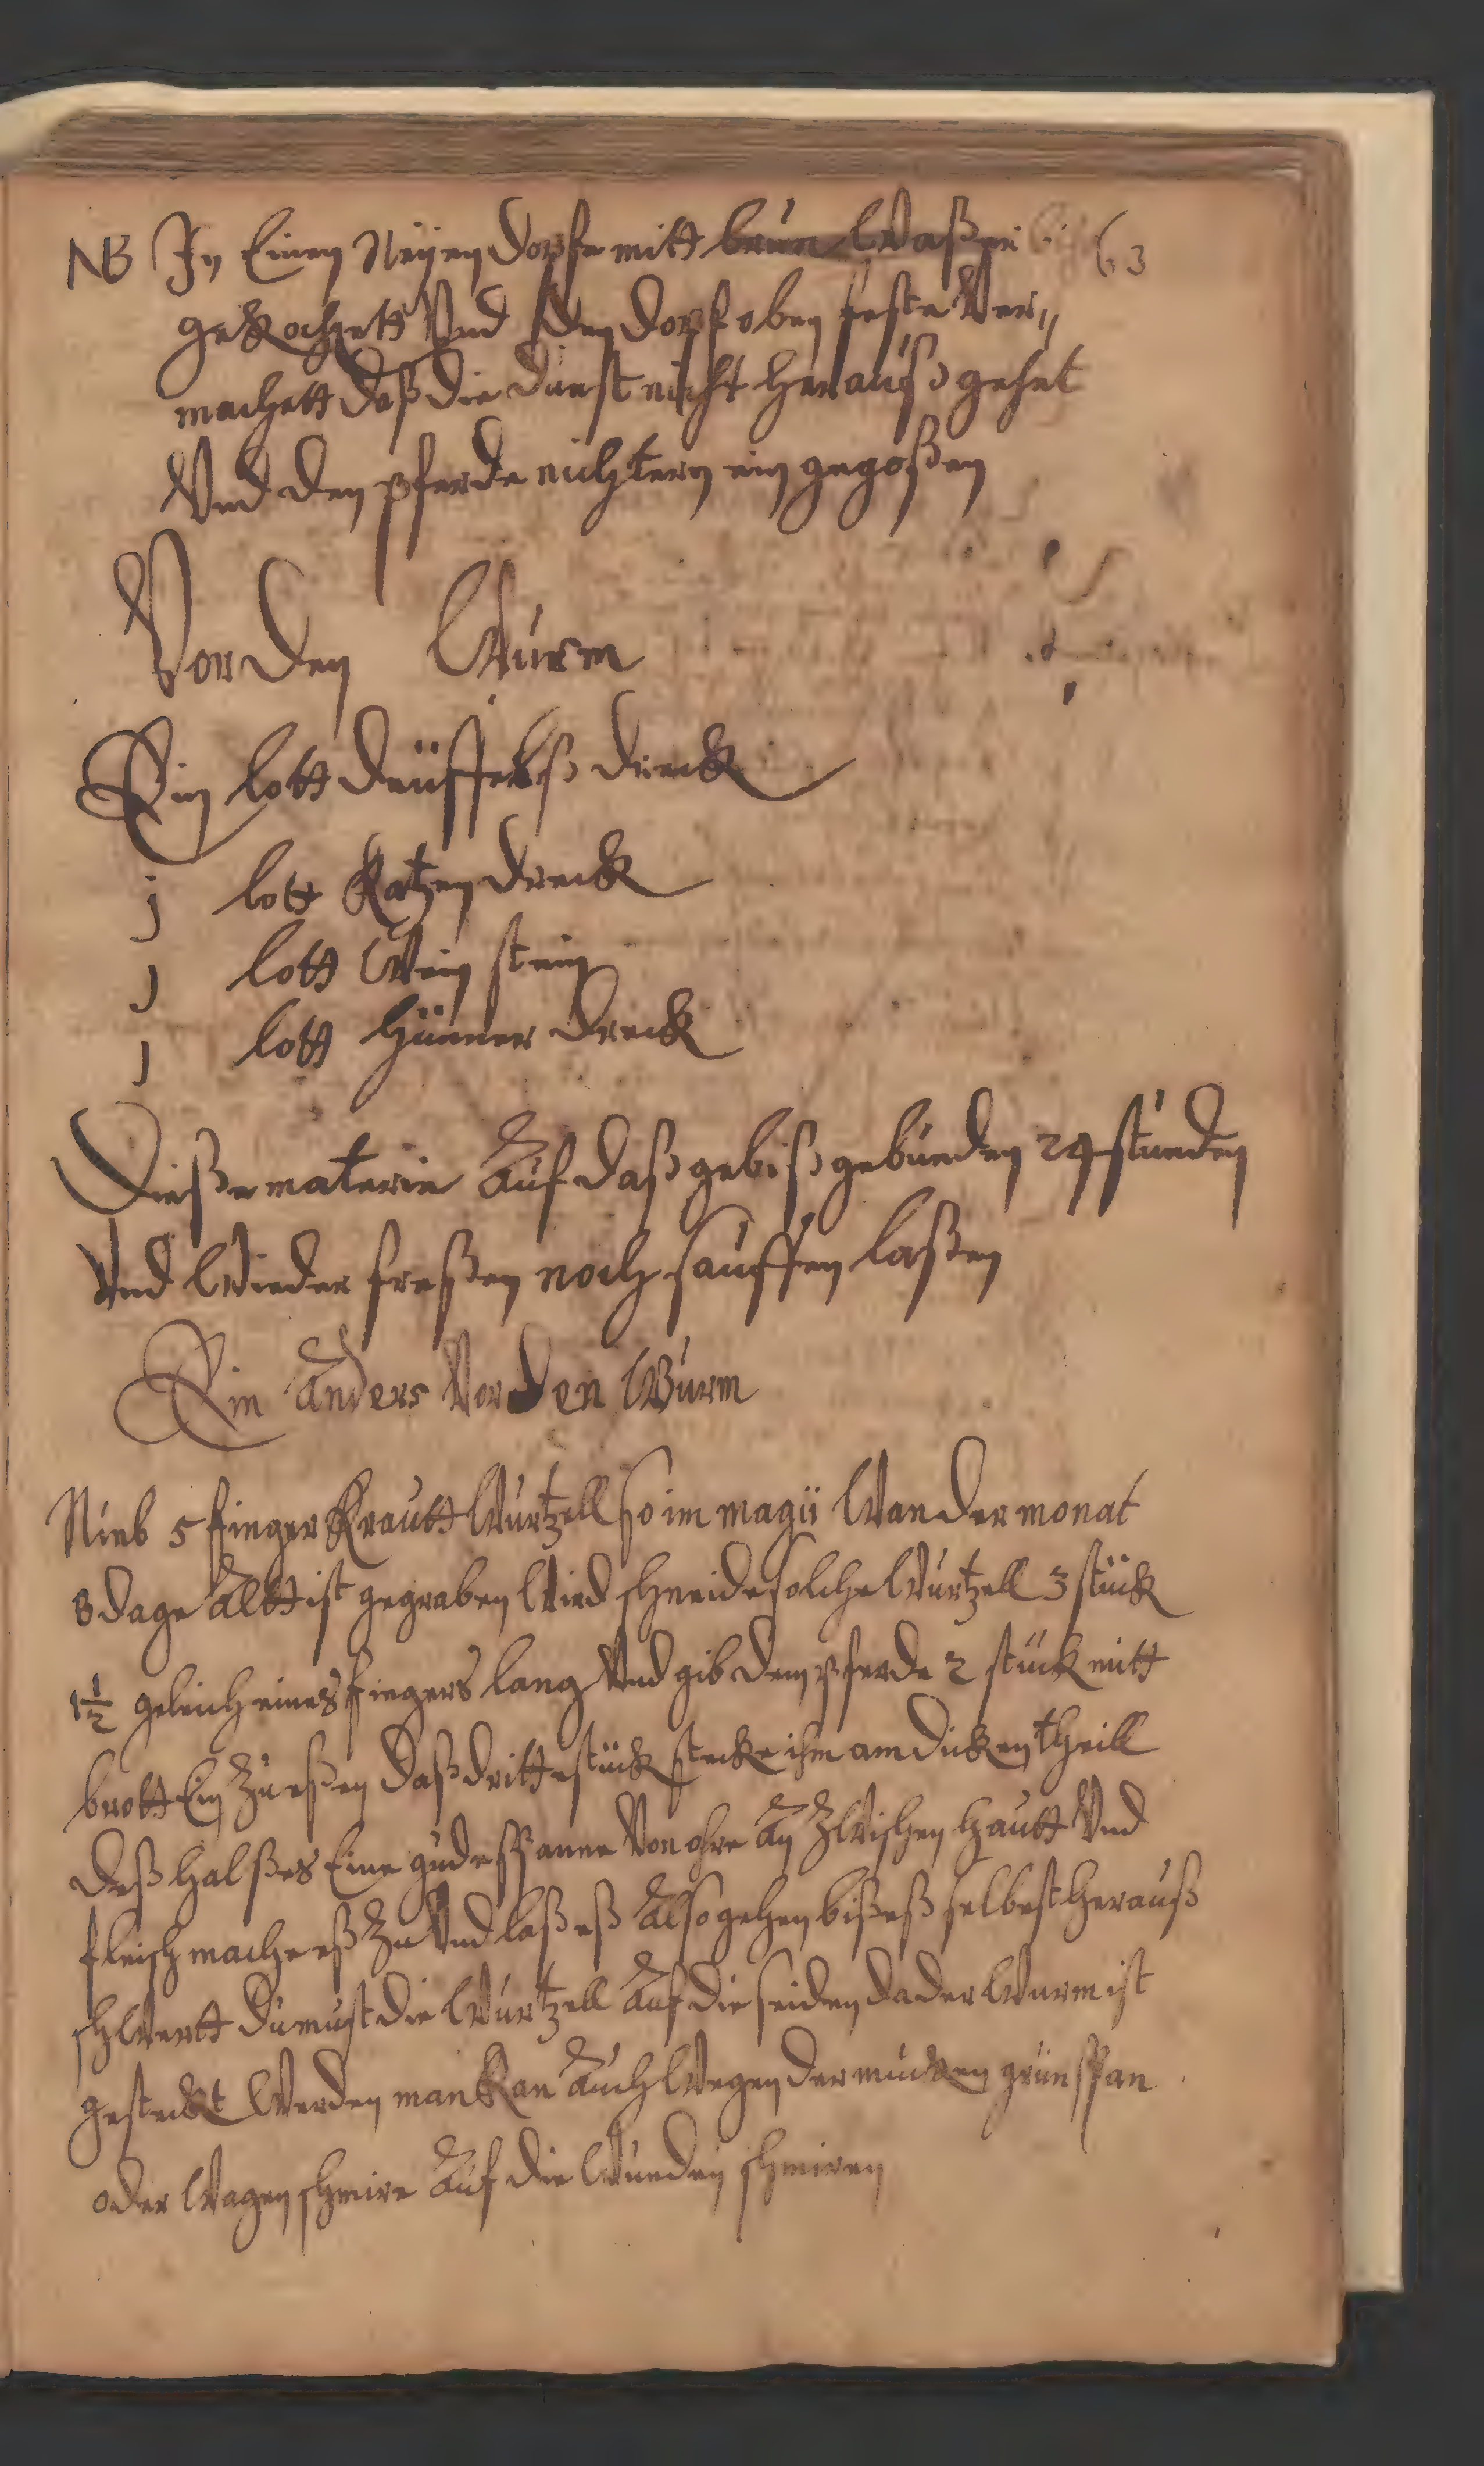 NB In Einen Neyen dopfe mitt brun Waßer 63
gekochett Vnd den dopf oben feste Ver〃
machett daß die dunst nicht herauß gehet
Vnd den pferde nüchtern ein gegoßen
Vor den Wurm
Ein lott deüffelß dreck
j lott Katzen dreck
j lott Wein stein
j lott hüner dreck
Dieße materie Auf daß gebiß gebunden 24 stunden
Vnd Wieder freßen noch sauffen laßen
Ein anders Vor den Wurm
Nieb 5 finger Krautt Wurtzell so im magii Wan der monat
8 dage Altt ist gegraben Wird schneide solche Wurtzell 3 stück
1½ geleich eines fingers lang Vnd gib dem pferde 2 stück mitt
brott Ein zu eßen daß dritte stück stecke ihm am dicken theill
deß halßes Eine gude spanne Von ohre An Zwischen hautt Vnd
fleisch mache eß Zu Vnd laß eß Also gehen biß eß selbest herauß
schwertt du must die Wurtzell Auf die seiden da der Wurm ist
gesteckt Werden man Kan Auch Wegen der mucken grünspan
oder Wagen schmire Auf die Wunden schmiren